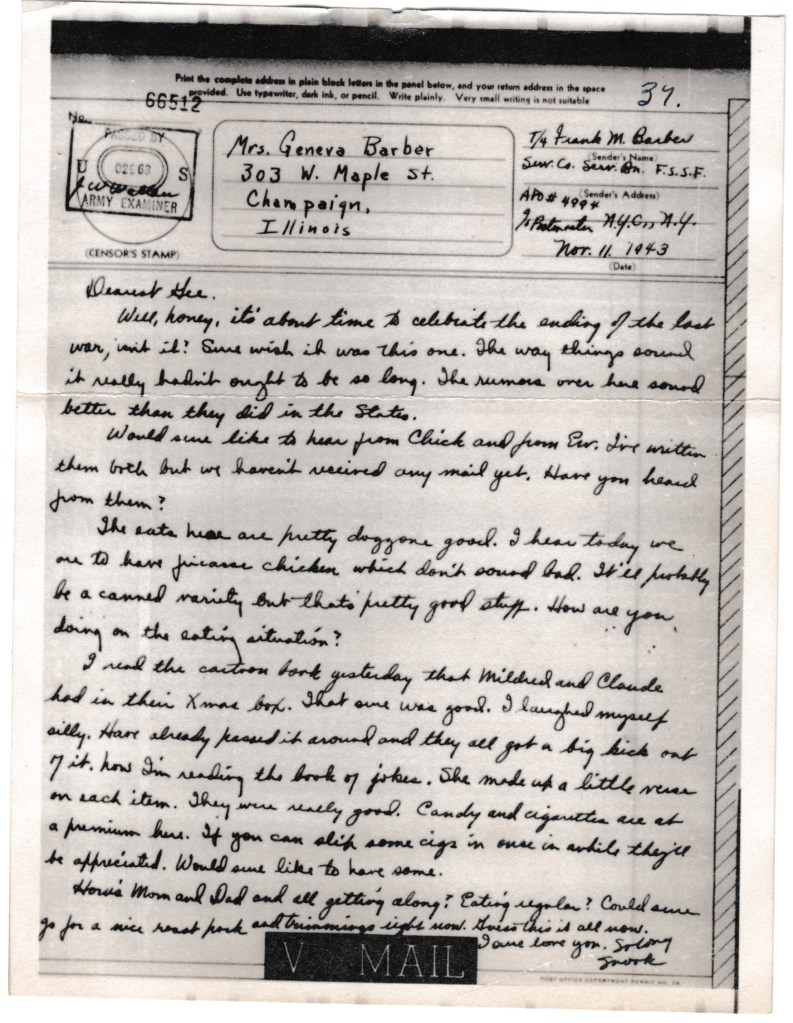 Print the complete address in plain block letters in the panel below, and your return address in the space
provided. Use typewriter, dark ink, or pencil. Write plainly. Very small writing is not suitable
37.
66512
No.
PASSED BY
U S
02563
ARMY EXAMINER
(CENSOR'S STAMP)
Mrs. Geneva Barber
303 W. Maple St.
Champaign,
Illinois
T/4 Frank M. Barber
(Sender's Name)
Serv. Co. Serv. Bn. F.S.S.F.
(Sender's Address)
APO# 4994
℅ Postmaster N.Y.C., N.Y.
Nov. 11, 1943
(Date)
Dearest Gee.
Well, honey, it's about time to celebrate the ending of the last
war, isn't it? Sure wish it was this one. The way things sound
it really hadn't ought to be so long. The rumors over here sound
better than they did in the States.
Would sure like to hear from Chick and from Ew. I've written
them both but we haven't received any mail yet. Have you heard
from them?
The eats here are pretty doggone good. I hear today we
are to have fricasse chicken which don't sound bad. It'll probably
be a canned variety but that's pretty good stuff. How are you
doing on the eating situation?
I read the cartoon book yesterday that Mildred and Claude
had in their Xmas box. That sure was good. I laughed myself
silly. Have already passed it around and they all got a big kick out
of it. Now I'm reading the book of jokes. She made up a little verse
on each item. They were really good. Candy and cigarettes are at
a premium here. If you can slip some cigs in once in awhile they'll
be appreciated. Would sure like to have some.
How's Mom and Dad and all getting along? Eating regular? Could sure
go for a nice roast pork and trimmings right now. Guess this is all now.
I sure love you. So Long
Snook
V MAIL
POST OFFICE DEPARTMENT PERMIT NO.